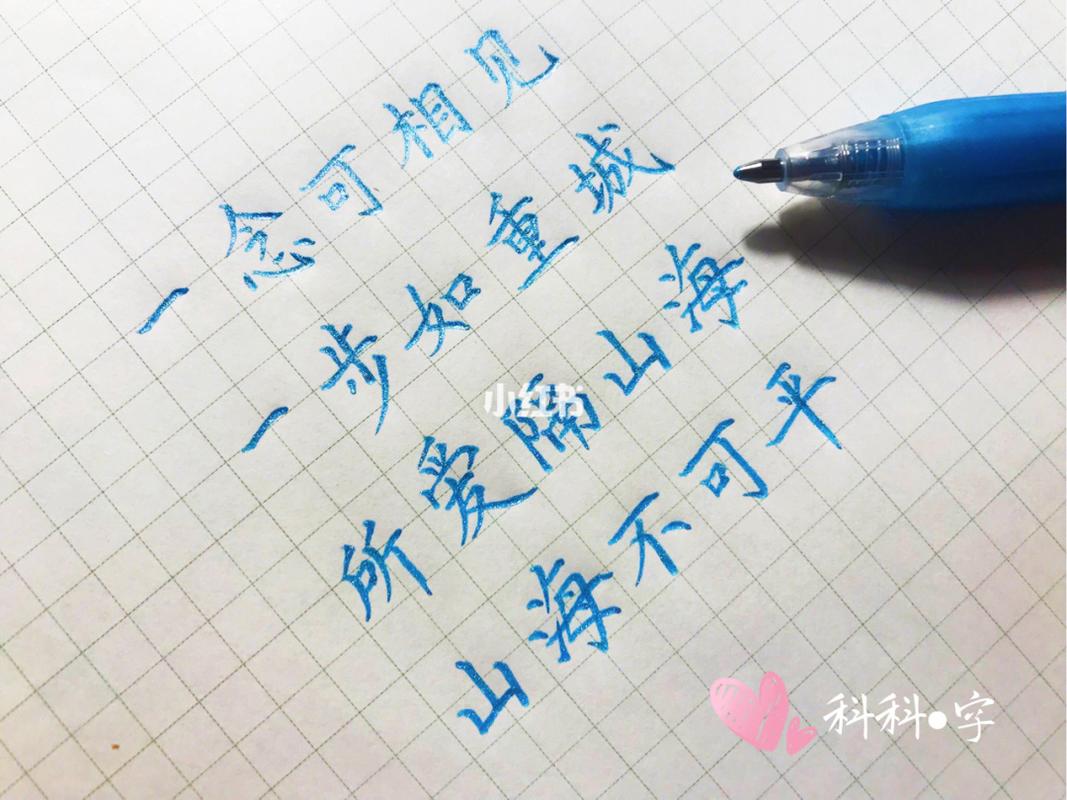 一念可相见
一步如重城
所爱隔山海
山海不可平
小红书
科科•字